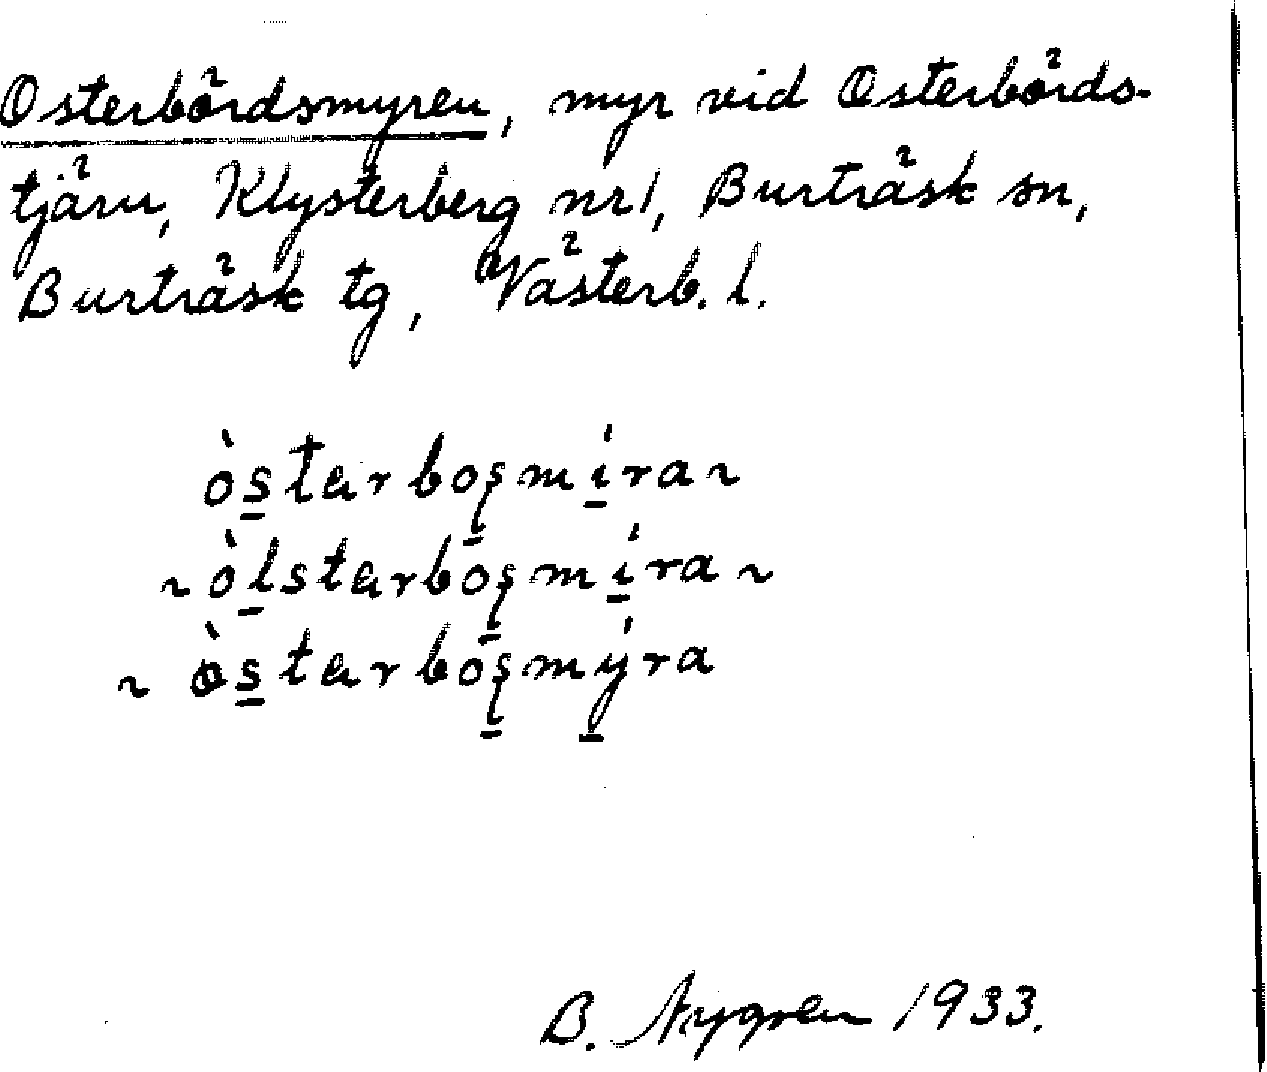 Osterbördsmyren, myr vid Osterbörds-
tjärn, Klysterberg nr 1, Burträsk sn,
Burträsk tg, Västerb. l.
òs̲tarbo̧şmi̲ra ~
~ òl̲starbo̧şmi̲ra ~
~ òs̲tarbo̧şmy̲ra
B. Nygren 1933.